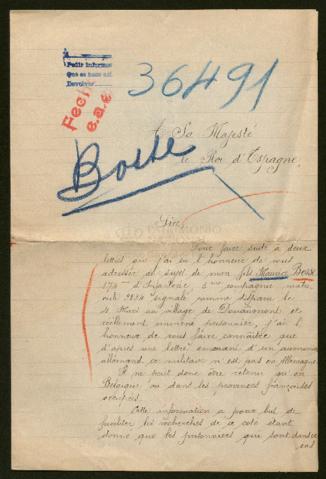 Pedir informes
que se hace así
Devolver
36491
Fech
e.a.c
A Sa Majesté
le Roi d'Espagne
Bosse
Sire,
Pour faire suite à deux
lettres que j'ai eu l'honneur de vous
adresser au sujet de mon fils Maurice Bosse
174me d'Infanterie, 3me compagnie matri
cule signalé comme disparu le
4 Mars au village de Douaumont et
réellement prisonnier, j'ai l'
honneur de vous faire connaître que
d'après une lettre émanant d'un
allemand ce militaire n'est pas en Allemagne.
Il ne peut donc être retenu qu'en
Belgique ou dans les provinces françaises
occupées.
Cette information a pour but de
faciliter les recherches de ce côté étant
donné que les prisonniers qui sont dans ces